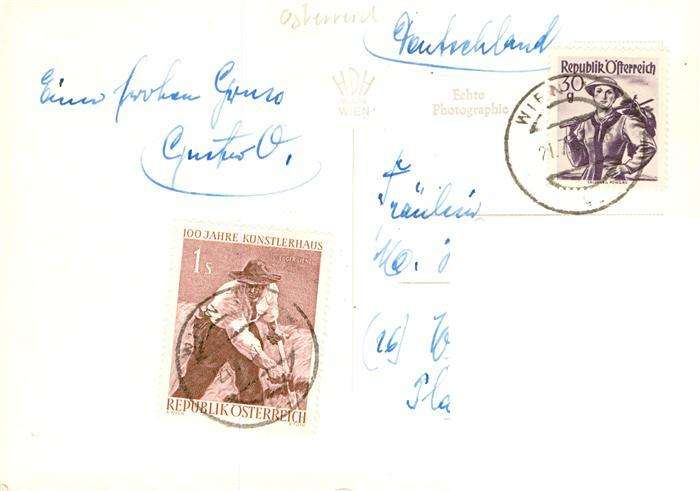 Österreich
Deutschland
Einen frohen Gruss
Gustav O.
HDH
WIEN
Echte
Photographie
Republik Österreich
30
g
WIEN
21.
Fräulein
(16)
100 JAHRE KÜNSTLERHAUS
1 S
REPUBLIK ÖSTERREICH